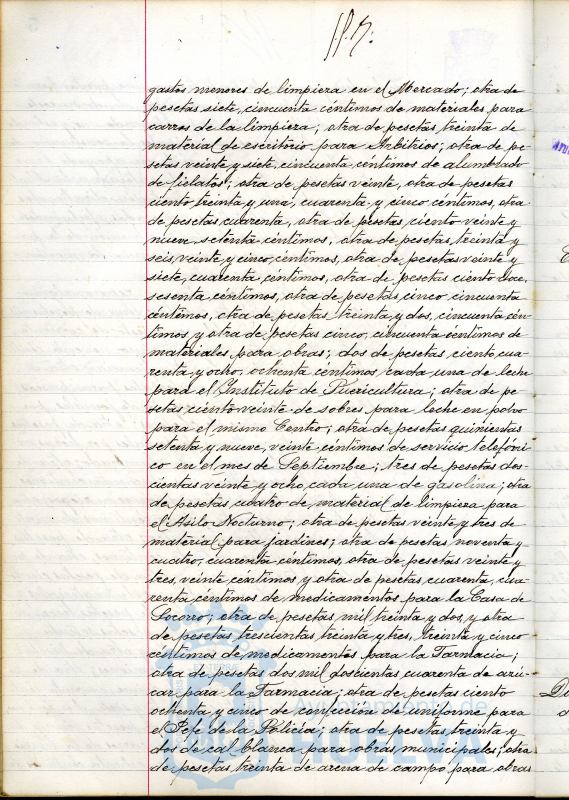 gastos menores de limpieza en el Mercado; otra de
pesetas siete, cincuenta céntimos de materiales para
carros de la limpieza; otra de pesetas treinta de
material de escritorio para Arbitrios; otra de pe-
setas veinte y siete, cincuenta céntimos de alumbrado
de fielatos; otra de pesetas veinte, otra de pesetas
ciento treinta y una, cuarenta y cinco céntimos, otra
de pesetas cuarenta, otra de pesetas ciento veinte y
nueve, setenta céntimos, otra de pesetas treinta y
seis, veinte y cinco céntimos, otra de pesetas veinte y
siete, cuarenta céntimos, otra de pesetas ciento doce,
sesenta céntimos, otra de pesetas cinco cincuenta
céntimos, otra de pesetas treinta y dos, cincuenta cén-
timos y otra de pesetas cinco, cincuenta céntimos de
materiales para obras; dos de pesetas ciento cua-
renta y ocho, ochenta céntimos cada una de leche
para el Instituto de Puericultura; otra de pe-
setas ciento veinte de sobres para leche en polvo
para el mismo Centro; otra de pesetas quinientas
setenta y nueve, veinte céntimos de servicio telefóni-
co en el mes de Septiembre; tres de pesetas dos-
cientas veinte y ocho, cada una de gasolina; otra
de pesetas cuatro de material de limpieza para
el Asilo Nocturno; otra de pesetas veinte y tres de
material para jardines; otra de pesetas noventa y
cuatro, cuarenta céntimos, otra de pesetas veinte y
tres, veinte céntimos y otra de pesetas cuarenta, cua-
renta céntimos de medicamentos para la Casa de
Socorro; otra de pesetas mil treinta y dos, y otra
de pesetas trescientas treinta y tres, treinta y cinco
céntimos de medicamentos para la Farmacia;
otra de pesetas dos mil doscientas cuarenta de azú-
car para la Farmacia; otra de pesetas ciento
ochenta y cinco de confección de uniforme para
el Jefe de la Policía; otra de pesetas treinta y
dos de cal blanca para obras municipales; otra
de pesetas treinta de arena de campo para obras
Ayuntamiento de
HUELVA